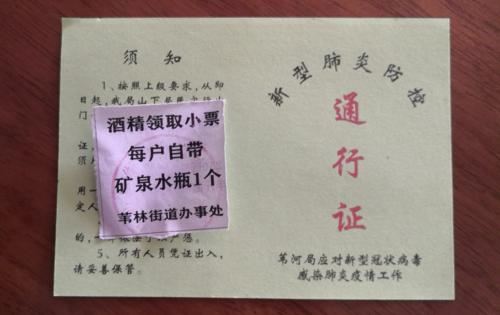 须知
1、按照上级要求,从即
日起,我局山下居民
门
证,
须
用一
定人
的,
5、所有人员凭证出入,
请妥善保管。
酒精领取小票
每户自带
矿泉水瓶1个
苇林街道办事处
新型肺炎防控
通行证
苇河局应对新型冠状病毒
感染肺炎疫情工作